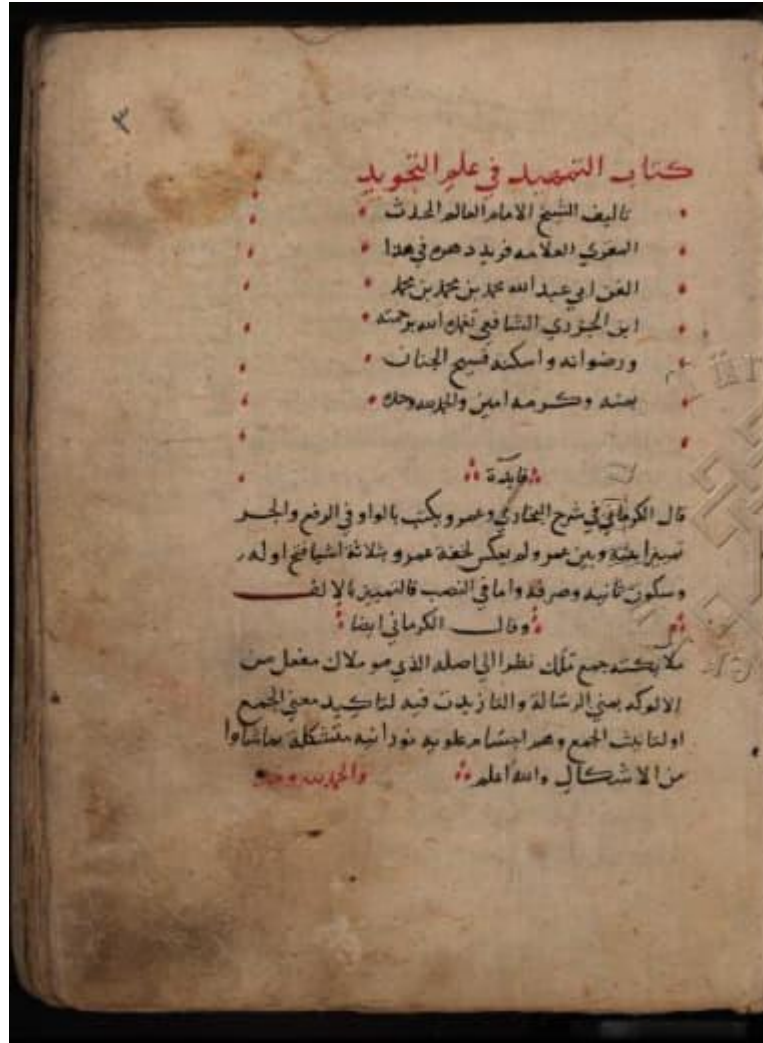 ٣
كتاب التمهيد في علم التجويد
تاليف الشيخ الامام العالم المحدث
المقري العلامه فريد دهره في هذا
الفن ابي عبد الله محمد بن محمد بن محمد
ابن الجزري الشافعي تغمده الله برحمته
ورضوانه واسكنه فسيح الجنان
بمنه وكرمه امين والحمد لله وحده
فايدة
قال الكرماني في شرح البخاري وعمرو يكتب بالواو في الرفع والجر
تمييزا بينه وبين عمر ولم يعكس لخفة عمرو بثلاثة اشيا فتح اوله
وسكون ثانيه وصرفه واما في النصب فالتمييز بالالف
وقال الكرماني ايضا
ملآيكته جمع ملك نظرا الي اصله الذي هو ملاك مفعل من
الالوكه بمعني الرسالة والتا زيدت فيه لتاكيد معني الجمع
او لتانيث الجمع وهم اجسام علويه نورانيه متشكلة بما شاوا
من الاشكال والله اعلم والحمد لله وحده